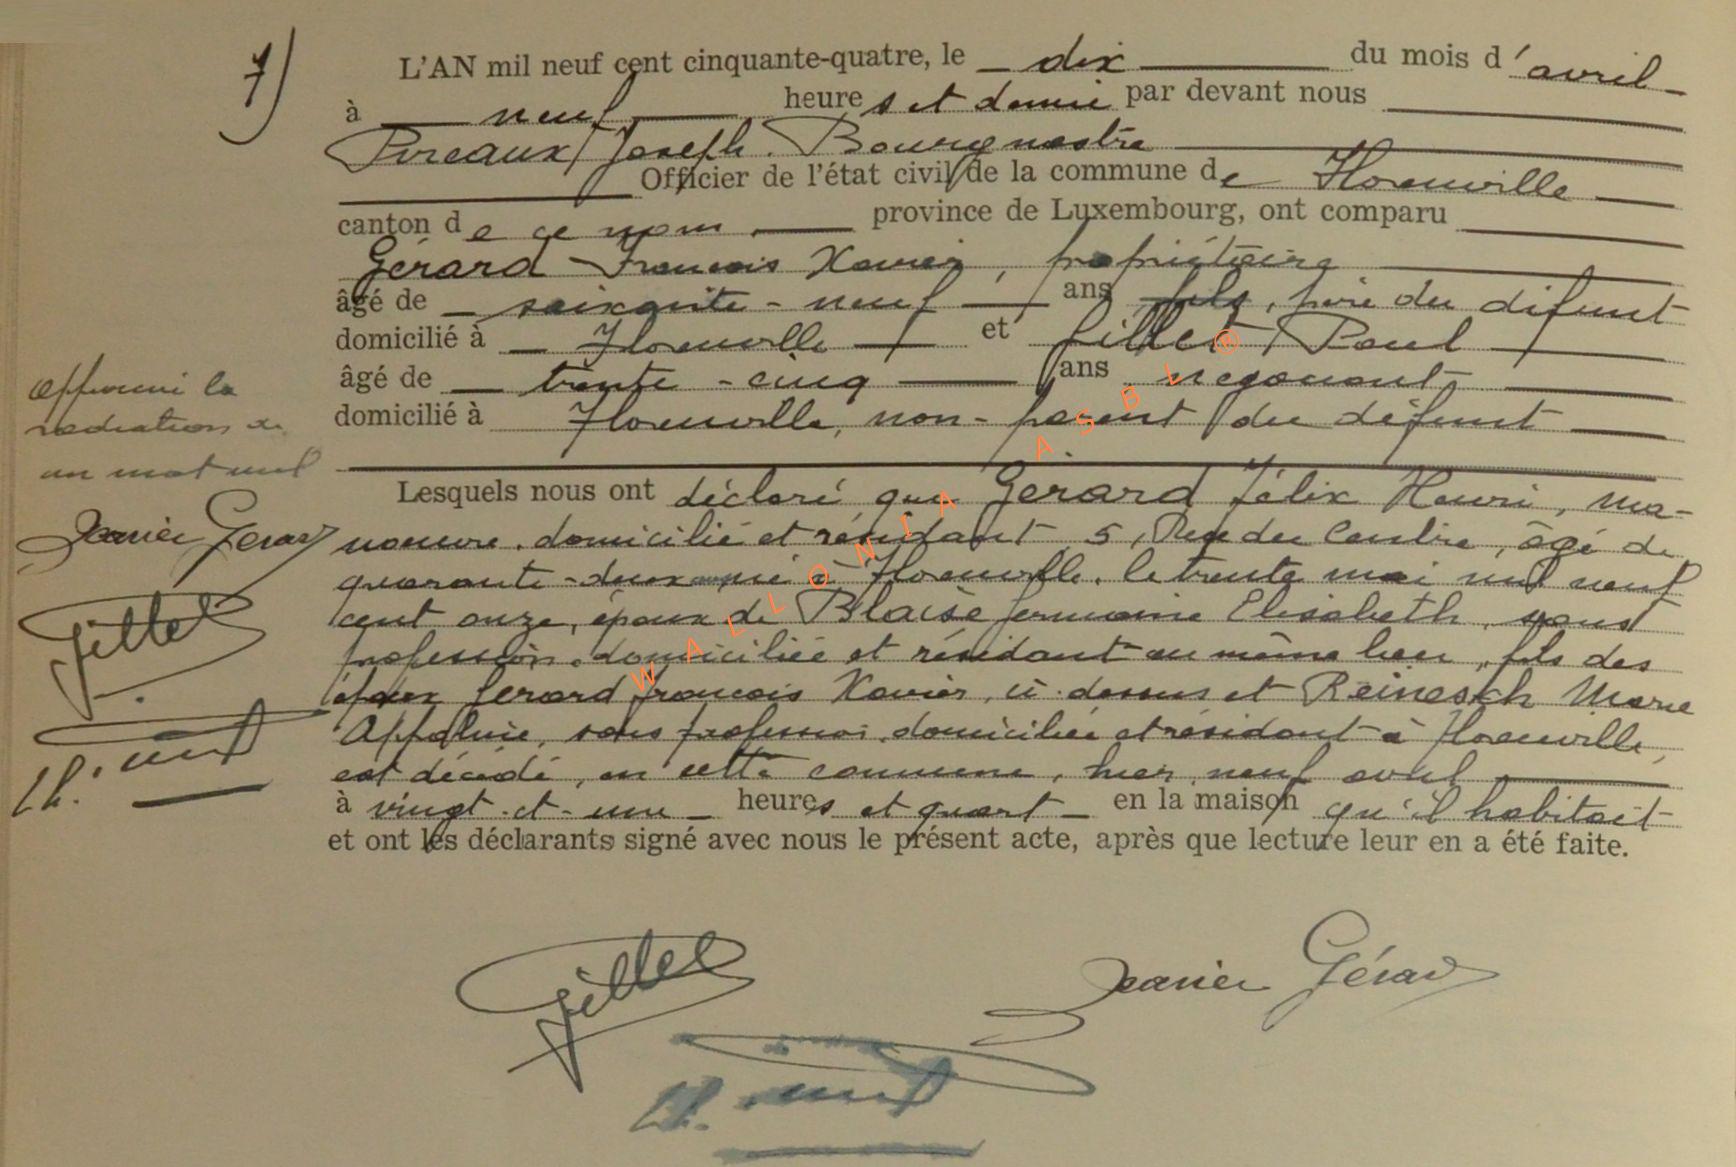 7)
L'AN mil neuf cent cinquante-quatre, le dix du mois d'avril
à neuf heures et demie par devant nous
Pireaux Joseph. Bourgmestre
Officier de l'état civil de la commune de Florenville
canton de ce nom province de Luxembourg, ont comparu
Gérard François Xavier, propriétaire
âgé de soixante-neuf ans père du défunt
domicilié à Florenville et Gillet Paul
âgé de trente-cinq ans négociant
domicilié à Florenville, non-parent du défunt
Lesquels nous ont déclaré que Gérard Félix Henri, ma-
noeuvre, domicilié et résidant 5, Rue du Centre, âgé de
quarante-deux né à Florenville, le trente mai mil neuf
cent onze, époux de Blaise Germaine Elisabeth, sans
profession, domiciliée et résidant au même lieu, fils des
époux Gérard François Xavier, ci-dessus et Reinesch Marie
Appoline, sans profession, domiciliée et résidant à Florenville,
est décédé, en cette commune, hier neuf avril
à vingt-et-une heures et quart en la maison qu'il habitait
et ont les déclarants signé avec nous le présent acte, après que lecture leur en a été faite.
Approuvé la
radiation de
un mot nul
Xavier Gérard
Gillet
Gillet
Xavier Gérard
WALLONIA ASBL ®